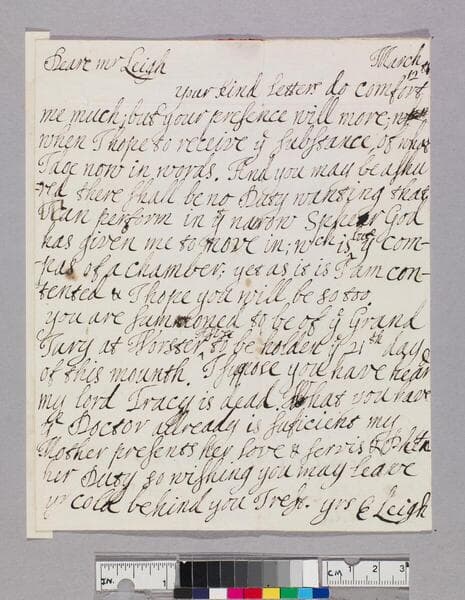 Deare mr Leigh March
12th
your kind letters do comfort
me much, but your presence will more,
when I hope to receive ye substance of what
I ace now in words. And you may be assu
red there shall be no Duty wanting that
I can perform in ye narow Sphear God
has given me to move in; wch is but ye com-
pas of a chamber, yet as it is I am con-
tented & I hope you will be so too.
you are summoned to be of ye Grand
Jury at Worster to be holden ye 21th day
of this mounth. I suppose you have hear
my lord Tracy is dead. What you have
ye Doctor allready is suficient my
Mother presents her love & servis &
her Duty so wishing you may leave
yr cold behind you I rest. yrs E Leigh
IN. 1
CM 1 2 3